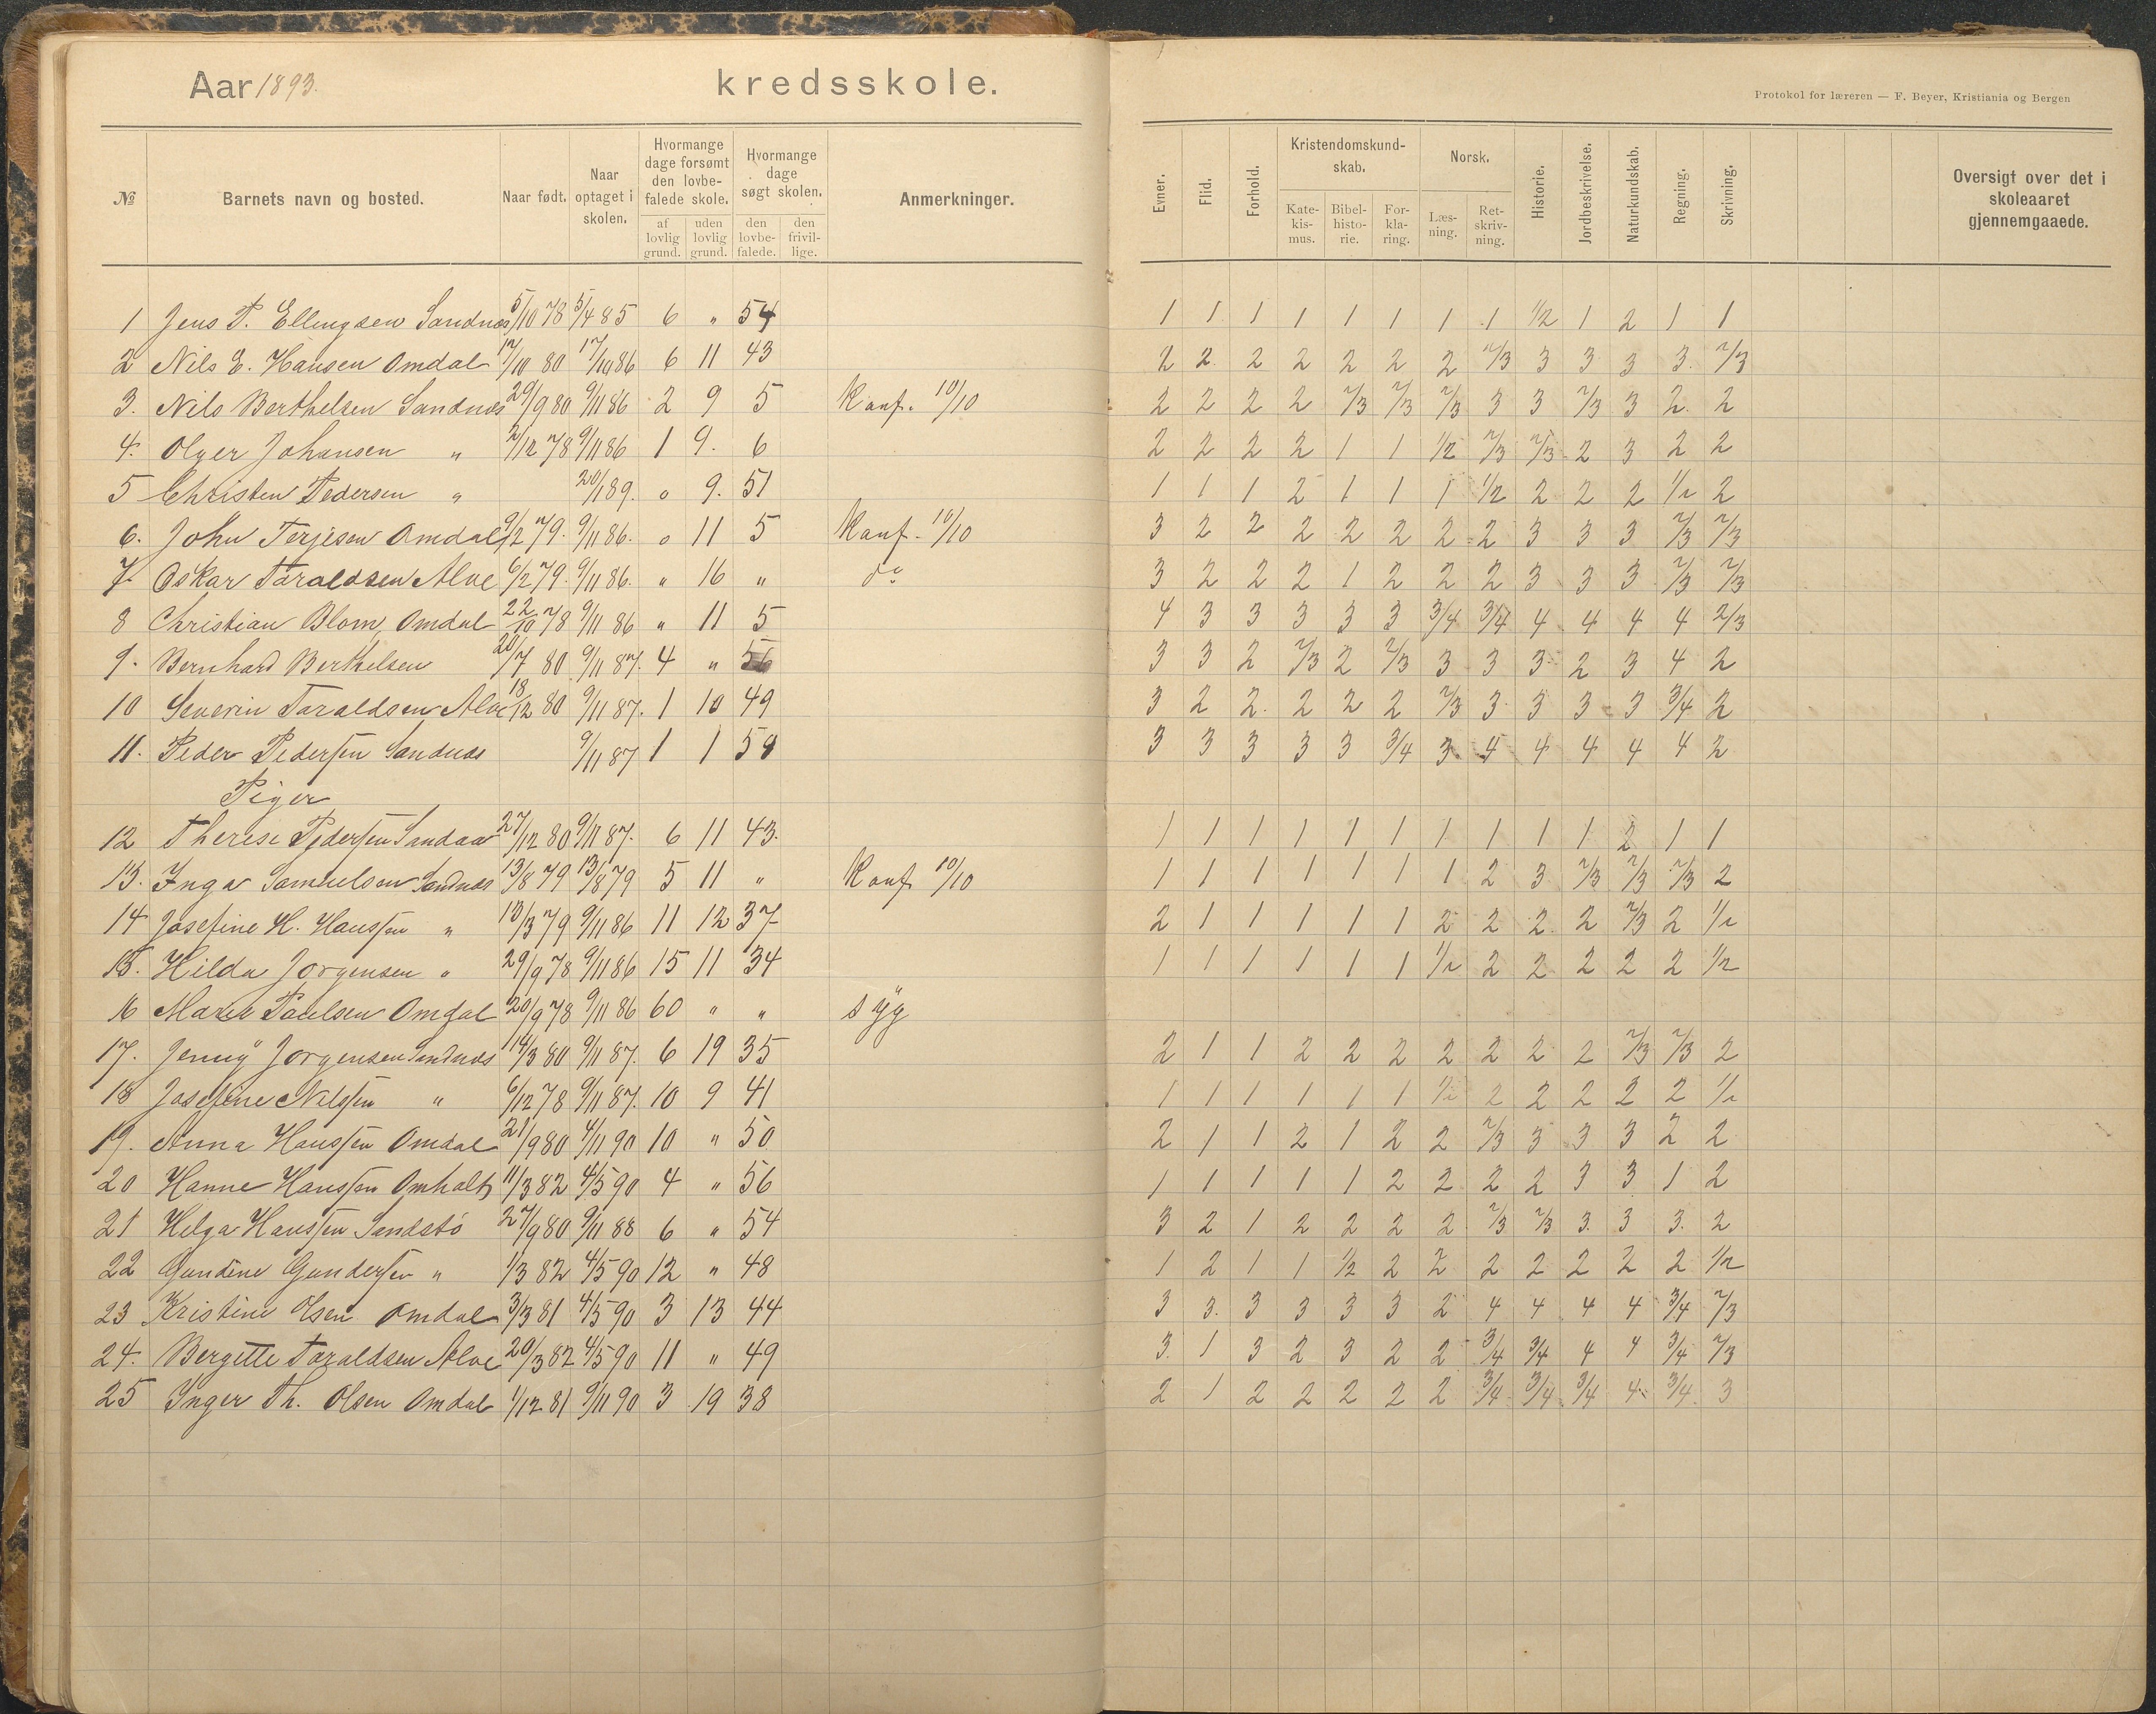 Aar 1893. kredsskole.
Protokol for læreren — F. Beyer, Kristiania og Bergen
№ Barnets navn og bosted. Naar født. Naar optaget i skolen. Hvormange dage forsømt den lovbefalede skole. af lovlig grund. uden lovlig grund. Hvormange dage søgt skolen. den lovbefalede. den frivillige. Anmerkninger. Evner. Flid. Forhold. Kristendomskundskab. Katekismus. Bibelhistorie. Forklaring. Norsk. Læsning. Retskrivning. Historie. Jordbeskrivelse. Naturkundskab. Regning. Skrivning. Oversigt over det i skoleaaret gjennemgaaede.
1 Jens P. Ellingsen Sandnæs 5/10 78 5/4 85 6 " 54 1 1 1 1 1 1 1 1 1/2 1 2 1 1
2 Nils E. Hansen Omdal 17/10 80 17/10 86 6 11 43 2 2. 2 2 2 2 2 2/3 3 3 3 3. 2/3
3. Nils Berthelsen Sandnæs 29/9 80 9/11 86 2 9 5 Konf. 10/10 2 2 2 2 2/3 2/3 2/3 3 3 2/3 3 2. 2
4. Olger Johansen " 2/12 78 9/11 86 1 9. 6 2 2 2 2 1 1 1/2 2/3 2/3 2 3 2 2
5 Christen Pedersen " 20/1 89. o 9. 51 1 1 1 2 1 1 1 1/2 2 2 2 1/2 2
6. John Terjesen Omdal 9/2 79. 9/11 86. o 11 5 Konf. 10/10 3 2 2 2 2 2 2 2 3 3 3 2/3 2/3
7. Oskar Taraldsen Alve 6/2 79. 9/11 86. " 16 " do 3 2 2 2 1 2 2 2 3 3 3 2/3 2/3
8 Christian Blom, Omdal 22/10 78 9/11 86 " 11 5 4 3 3 3 3 3 3/4 3/4 4 4 4 4 2/3
9. Bernhard Berthelsen 20/7 80 9/11 87. 4 " 56 3 3 2 2/3 2 2/3 3 3 3 2 3 4 2
10 Severin Taraldsen Alve 18/12 80 9/11 87. 1 10 49 3 2 2. 2 2 2 2/3 3 3 3 3 3/4 2
11. Peder Pedersen Sandnæs 9/11 87 1 1 58 3 3 3 3 3 3/4 3 4 4 4 4 4 2
Piger
12 Therese Pedersen Sandaa 27/12 80 9/11 87. 6 11 43. 1 1 1 1 1 1 1 1 1 1 2 1 1
13. Inga Samuelsen Sandnæs 13/8 79 13/8 79 5 11 " Konf 10/10 1 1 1 1 1 1 1 2 3 2/3 2/3 2/3 2
14 Josefine H. Hanssen " 13/3 79 9/11 86 11 12 37 2 1 1 1 1 1 2 2 2 2 2/3 2 1/2
15. Hilda Jørgensen " 29/9 78 9/11 86 15 11 34 1 1 1 1 1 1 1/2 2 2 2 2 2 1/2
16 Marie Paulsen Omdal 20/9 78 9/11 86 60 " " syg
17. Jenny Jorgensen Sandnæs 14/3 80 9/11 87. 6 19 35 2 1 1 2 2 2 2 2 2 2 2/3 2/3 2
18 Josefine Nilssen " 6/12 78 9/11 87. 10 9 41 1 1 1 1 1 1 1/2 2 2 2 2 2 1/2
19. Anna Hanssen Omdal 21/9 80 4/11 90 10 " 50 2 1 1 2 1 2 2 2/3 3 3 3 2 2
20 Hanne Hanssen Omholt 11/3 82 4/5 90 4 " 56 1 1 1 1 1 2 2 2 2 3 3 1 2
21 Helga Hanssen Sandstø 27/9 80 9/11 88 6 " 54 3 2 1 2 2 2 2 2/3 2/3 3. 3 3. 2
22 Gundine Gundersen " 1/3 82 4/5 90 12 " 48 1 2 1 1 1/2 2 2 2 2 2 2 2 1/2
23 Kristine Olsen Omdal 3/3 81 4/5 90 3 13 44 3 3. 3 3 3 3 2 4 4 4 4 3/4 2/3
24. Bergette Taraldsen Alve 20/3 82 4/5 90 11 " 49 3. 1 3 2 3 2 2 3/4 3/4 4 4 3/4 2/3
25 Inger Th. Olsen Omdal 1/12 81 9/11 90 3 19 38 2 1 2 2 2 2 2 3/4 3/4 3/4 4 3/4 3